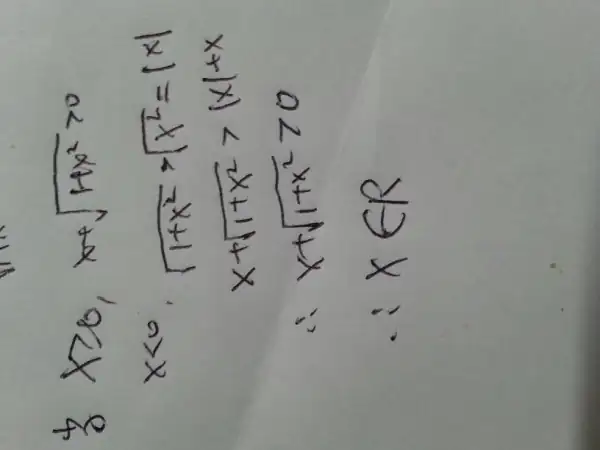 x≥0, x+√(1+x²)>0
x<0, √(1+x²)>√(x²)=|x|
x+√(1+x²)>|x|+x
∴ x+√(1+x²)>0
∴ x∈R